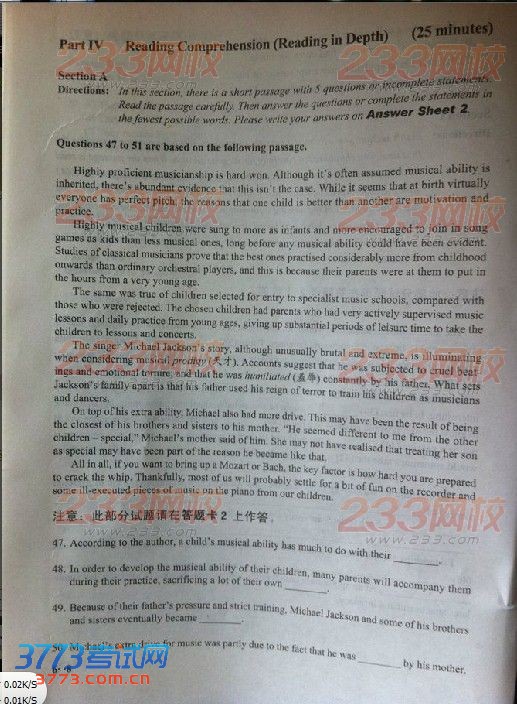 Part IV Reading Comprehension (Reading in Depth) (25 minutes)
Section A
Directions: In this section, there is a short passage with 5 questions or incomplete statements.
Read the passage carefully. Then answer the questions or complete the statements in
the fewest possible words. Please write your answers on Answer Sheet 2.
Questions 47 to 51 are based on the following passage.
Highly proficient musicianship is hard won. Although it's often assumed musical ability is
inherited, there's abundant evidence that this isn't the case. While it seems that at birth virtually
everyone has perfect pitch, the reasons that one child is better than another are motivation and
practice.
Highly musical children were sung to more as infants and more encouraged to join in song
games as kids than less musical ones, long before any musical ability could have been evident.
Studies of classical musicians prove that the best ones practised considerably more from childhood
onwards than ordinary orchestral players, and this is because their parents were at them to put in
the hours from a very young age.
The same was true of children selected for entry to specialist music schools, compared with
those who were rejected. The chosen children had parents who had very actively supervised music
lessons and daily practice from young ages, giving up substantial periods of leisure time to take the
children to lessons and concerts.
The singer Michael Jackson's story, although unusually brutal and extreme, is illuminating
when considering musical prodigy (天才). Accounts suggest that he was subjected to cruel beat-
ings and emotional torture, and that he was humiliated (羞辱) constantly by his father. What sets
Jackson's family apart is that his father used his reign of terror to train his children as musicians
and dancers.
On top of his extra ability, Michael also had more drive. This may have been the result of being
the closest of his brothers and sisters to his mother. "He seemed different to me from the other
children – special," Michael's mother said of him. She may not have realised that treating her son
as special may have been part of the reason he became like that.
All in all, if you want to bring up a Mozart or Bach, the key factor is how hard you are prepared
to crack the whip. Thankfully, most of us will probably settle for a bit of fun on the recorder and
some ill-executed pieces of music on the piano from our children.
注意：此部分试题请在答题卡2上作答。
47. According to the author, a child's musical ability has much to do with their ________.
48. In order to develop the musical ability of their children, many parents will accompany them
during their practice, sacrificing a lot of their own ________.
49. Because of their father's pressure and strict training, Michael Jackson and some of his brothers
and sisters eventually became ________.
50. Michael's extra drive for music was partly due to the fact that he was ________ by his mother.
233网校
www.233.com
3773考试网
3773.com.cn
0.02K/S
0.01K/S